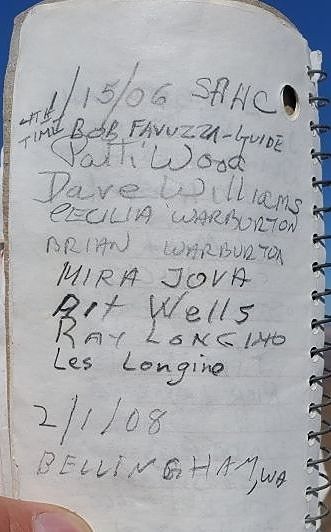 1/15/06 SAHC
4TH TIME BOB FAVUZZA-GUIDE
Patti Wood
Dave Williams
CECILIA WARBURTON
BRIAN WARBURTON
MIRA JOVA
Art Wells
RAY LONGINO
Les Longino
2/1/08
BELLINGHAM, WA